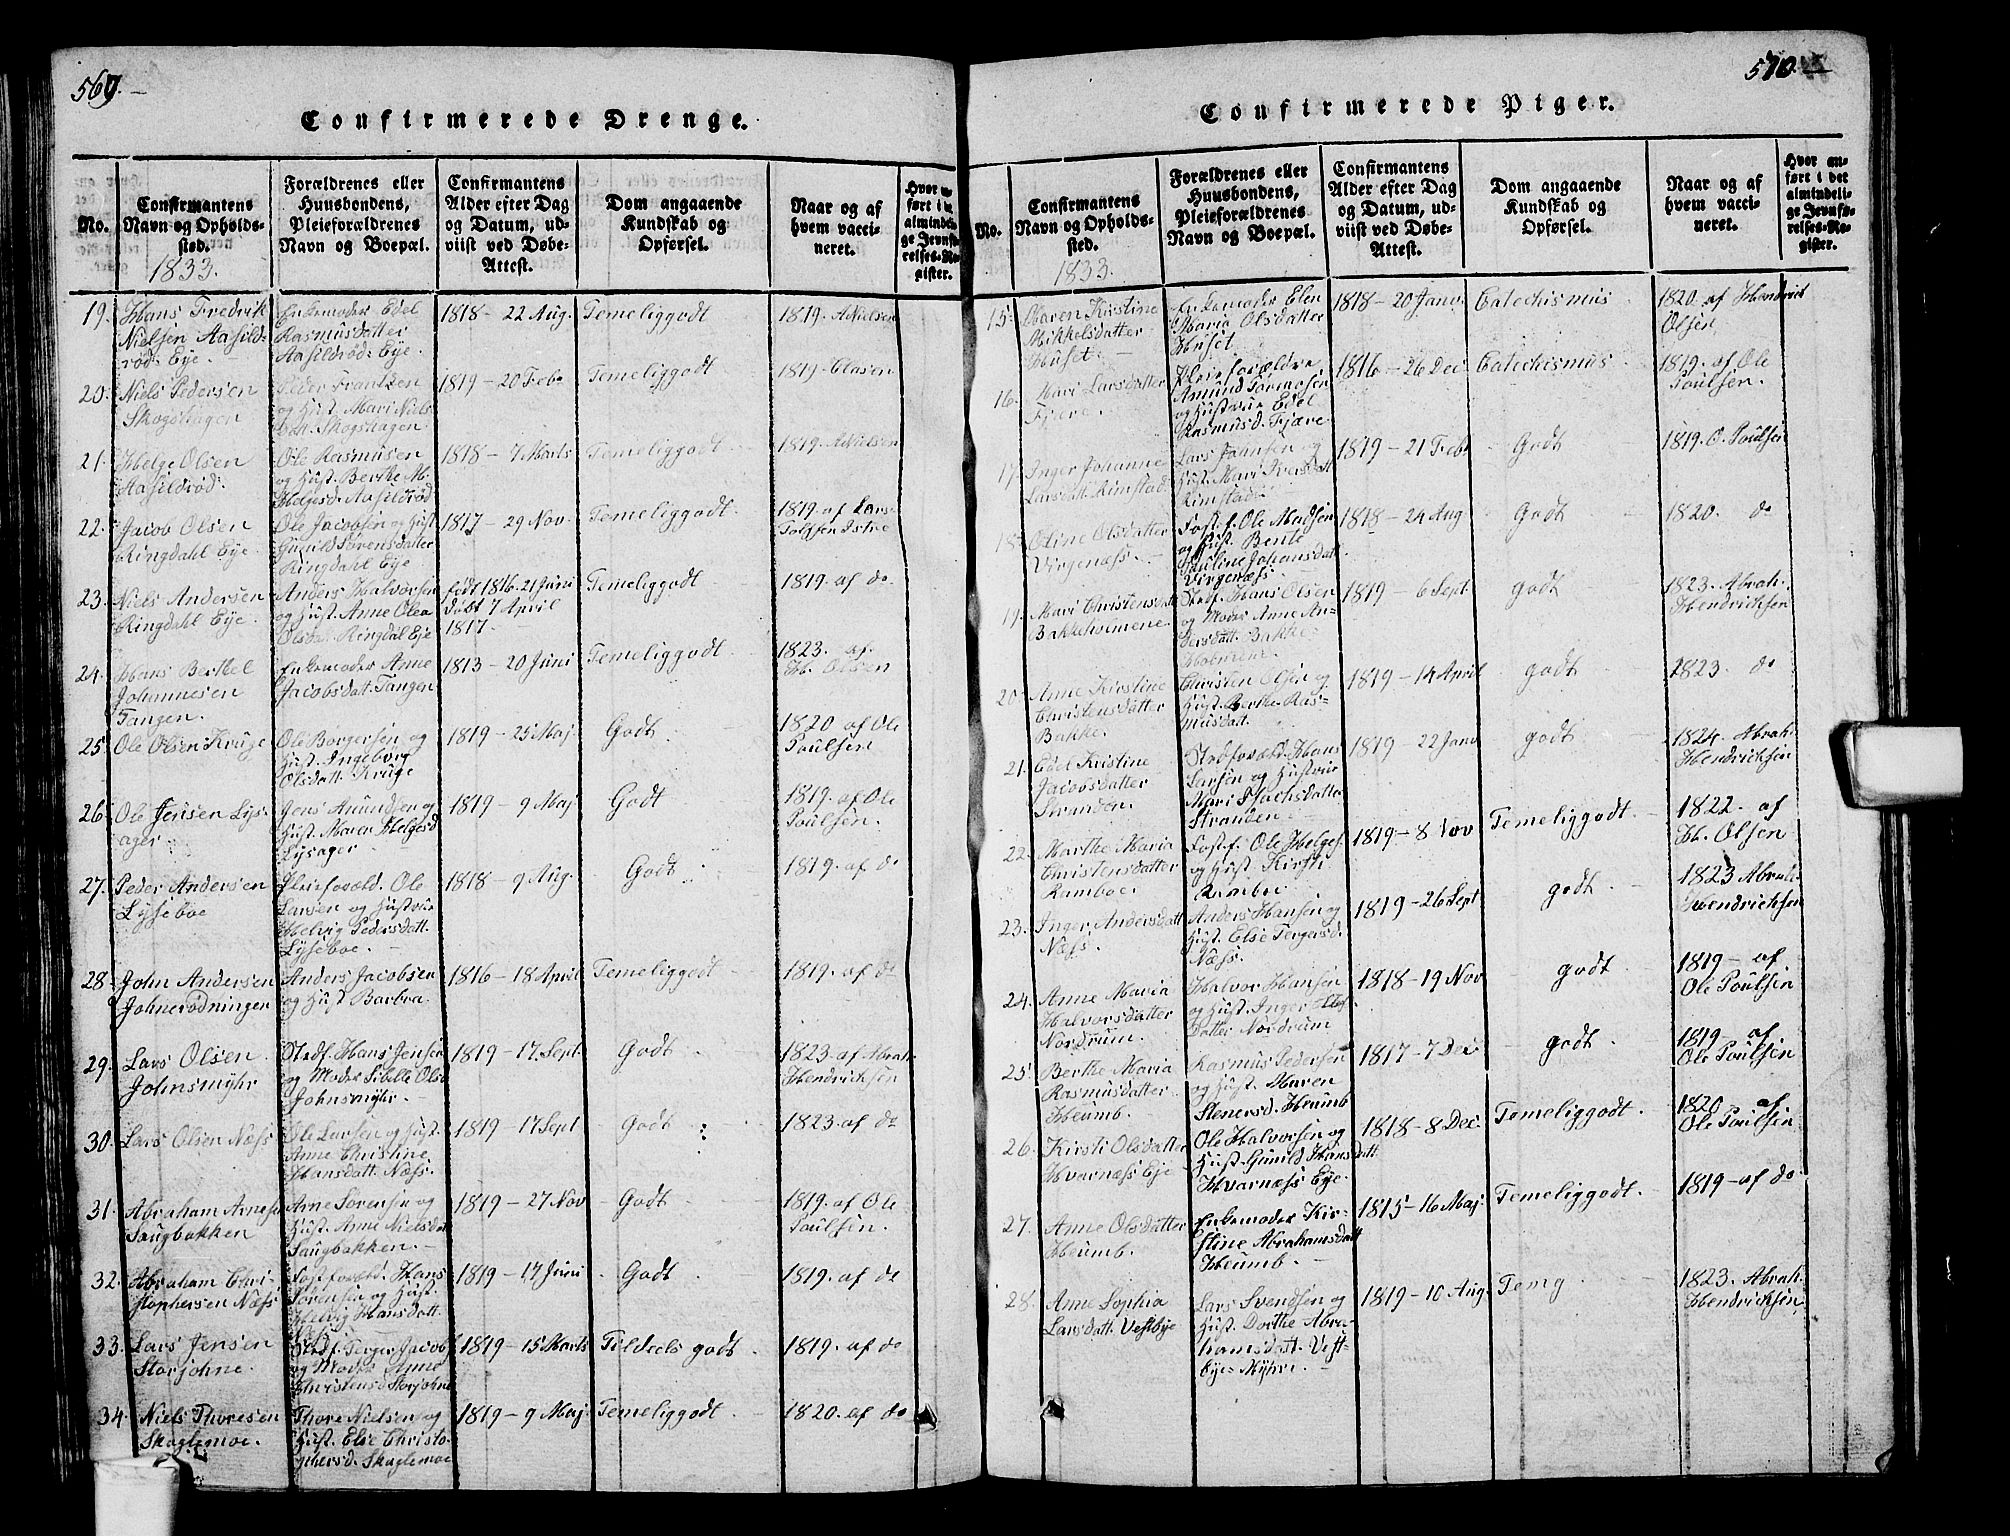 569.
Confirmerede Drenge.
No.
Confirmantens
Navn og Opholds-
sted.
1833.
Forældrenes eller
Huusbondens,
Pleieforældrenes
Navn og Boepæl.
Confirmantens
Alder efter Dag
og Datum, ud-
viist ved Døbe-
Attest.
Dom angaaende
Kundskab og
Opførsel.
Naar og af
hvem vacci-
neret.
Hvor
ført i
almind
ge Jevnf
relses-
gister.
19. Hans Fredrik
Nielsen Aasild-
rød: Eye.
Enkemoder Edel
Rasmusdatter
Aasildrød: Eye.
1818 - 22 Aug. Temeliggodt 1819. A Nielsen
20. Niels Pedersen
Skogshagen
Peder Frantzen
og Hust. Mari Niels
dat. Skogshagen.
1819 - 20 Feb. Temeliggodt 1819 Clasen
21. Helge Olsen
Aasildrød.
Ole Rasmusen
og Hust. Berthe M.
Helgesd. Aasildrød
1818 - 7 Marts Temeliggodt 1819. A Nielsen
22. Jacob Olsen
Ringdahl Eye.
Ole Jacobsen og Hust
Gunild Sørensdatter
Ringdahl Eye
1817 - 29 Nov. Temeliggodt. 1819. af Lars
23. Niels Andersen
Ringdahl Eye.
Anders Halvorsen
og Hust. Anne Olea
Olsdat. Ringdal Eje
født 1816. 21 Juni
døbt 7 April
1817.
Temeliggodt 1819. af do
24. Hans Berthel
Johannesen
Tangen.
Enkemoder Anne
Jacobsdat. Tangen
1813 - 20 Juni Temeliggodt. 1823. af
H. Olsen
25. Ole Olsen Kruge
Ole Borgersen og
Hust. Ingeborg
Olsdatt. Kruge
1819 - 25 Maj. Godt 1820 af Ole
Poulsen
26. Ole Jensen Lys-
ager
Jens Amundsen og
Hust. Maren Helgesd
Lysager
1819 - 9 Maj Godt 1819. af Ole
Poulsen.
27. Peder Andersen
Lyseboe
Pleieforæld. Ole
Larsen og Hustrue
Helvig Pedersdatt.
Lyseboe.
1818 - 9 Aug. Godt 1819. af do
28. John Andersen
Johnerødningen
Anders Jacobsen
og Hust Barbra.
1816 - 18 April Temeliggodt 1819. af do
29. Lars Olsen
Johnsmyhr
Stedf. Hans Jensen
og Moder Sibelle Olsd
Johnsmyhr.
1819 - 17 Sept. Godt 1823. af Abrah
Hendrichsen
30. Lars Olsen Næss
Ole Larsen og Hust.
Anne Christine
Hansdatt. Næss.
1819 - 17 Sept Godt 1823. af do
31. Abraham Arnese
Saugbakken
Arne Sørensen og
Hust. Anne Nielsdat
Saugbakken.
1819 - 27 Nov Godt 1819. af Ole
Poulsen.
32. Abraham Chri-
stophersen Næss
Fostforæld. Hans
Sørensen og Hust.
Helvig Hansdatt.
Næss
1819 - 17 Juni Godt 1819. af do
33. Lars Jensen
Storjohne.
Stedf. Terger Jacobs
og Moder Anne
Christensd Storjohne
1819 - 15 Marts Tildeels godt. 1819. af do
34. Niels Thoresen
Skaglemoe.
Thore Nielsen og
Hust. Else Christo-
phersd. Skaglemoe
1819 - 9 Maj. Temeliggodt 1820. af do
570.
Confirmerede Piger.
No.
Confirmantens
Navn og Opholds-
sted.
1833.
Forældrenes eller
Huusbondens,
Pleieforældrenes
Navn og Boepæl.
Confirmantens
Alder efter Dag
og Datum, ud-
viist ved Døbe-
Attest.
Dom angaaende
Kundskab og
Opførsel.
Naar og af
hvem vacci-
neret.
Hvor an-
ført i det
almindeli-
ge Jevnfø-
relses-Re-
gister.
15. Maren Kristine
Mikkelsdatter
Huset.
Enkemoder Elen
Maria Olsdatter
Huset
1818 - 20 Janv. Catechismus 1820. af Hendrich
Olsen
16. Mari Larsdatter
Fjære.
Pleieforældre
Amund Tormosen
og Hustrue Edel
Rasmusd. Fjære.
1816 - 26 Dec. Catechismus 1819. af Ole
Poulsen.
17. Inger Johanne
Larsdatt. Rimstad.
Lars Jannsen og
Hust. Mari Iversdatt
Rimstad.
1819 - 21 Feb Godt 1819. O. Poulsen
18. Oline Olsdatter
Virgenæss.
Fost. f. Ole Madsen
og Hust. Bente
Pauline Johansdatt.
Virgenæss.
1818 - 24 Aug Godt 1820. do
19. Mari Christensdatt
Bakkeholmene
Stedf. Hans Olsen
og Moder Anne An-
dersdatt. Bakke-
holmene.
1819 - 6 Sept godt 1823. Abrah.
Hendrichsen
20. Anne Kirstine
Christensdatter
Bakke.
Christen Olsen og
Hust. Berthe Ras-
musdatt.
1819 - 14 April godt 1823. do
21. Edel Kristine
Jacobsdatter
Stranden.
Stedforæld. Hans
Larsen og Hustrue
Mari Isachsdatter
Stranden
1819 - 22 Janv godt 1824. Abrah.
Hendricksen
22. Marthe Maria
Christensdatter
Ramboe.
Fost. f. Ole Helges.
og Hust. Kirsti
Ramboe.
1819 - 8 Nov Temeliggodt. 1822. af
H. Olsen
23. Inger Andersdatt
Næss.
Anders Hansen og
Hust. Else Tergersd.
Næss.
1819 - 26 Sept godt 1823 Abrah.
Hendrichsen
24. Anne Maria
Halvorsdatter
Nordrum.
Halvor Hansen
og Hust. Inger
datter Nordrum
1818 - 19 Nov godt 1819 - af
Ole Poulsen
25. Berthe Maria
Rasmusdatter
Heumb.
Rasmus Pedersen
og Hust. Maren
Stenersd. Heumb
1817 - 7 Dec. godt 1819 - af
Ole Poulsen
26. Kirsti Olsdatter
Hvarnæss Eje
Ole Halvorsen og
Hust. Gunild Hansdatt
Hvarnæss Eye.
1818 - 8 Dec. Temeliggodt. 1820 af
Ole Poulsen
27. Anne Olsdatter
Heumb.
Enkemoder Kir-
stine Abrahamsdatt
Heumb.
1815 - 16 Maj. Temeliggodt. 1819 - af do
28. Anne Sophia
Larsdatt. Vestbye
Lars Svendsen og
Hust. Dorthe Abra-
hamsdatt. Vest-
bye-Myhre.
1819 - 10 Aug. Temg. 1823. Abrah.
Hendricksen